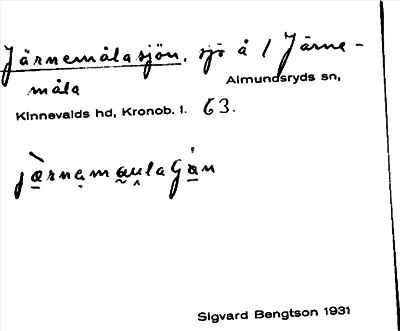 Järnemålasjön, sjö å 1 Järne-
måla Almundsryds sn,
Kinnevalds hd, Kronob. l. 63.
Sigvard Bengtson 1931